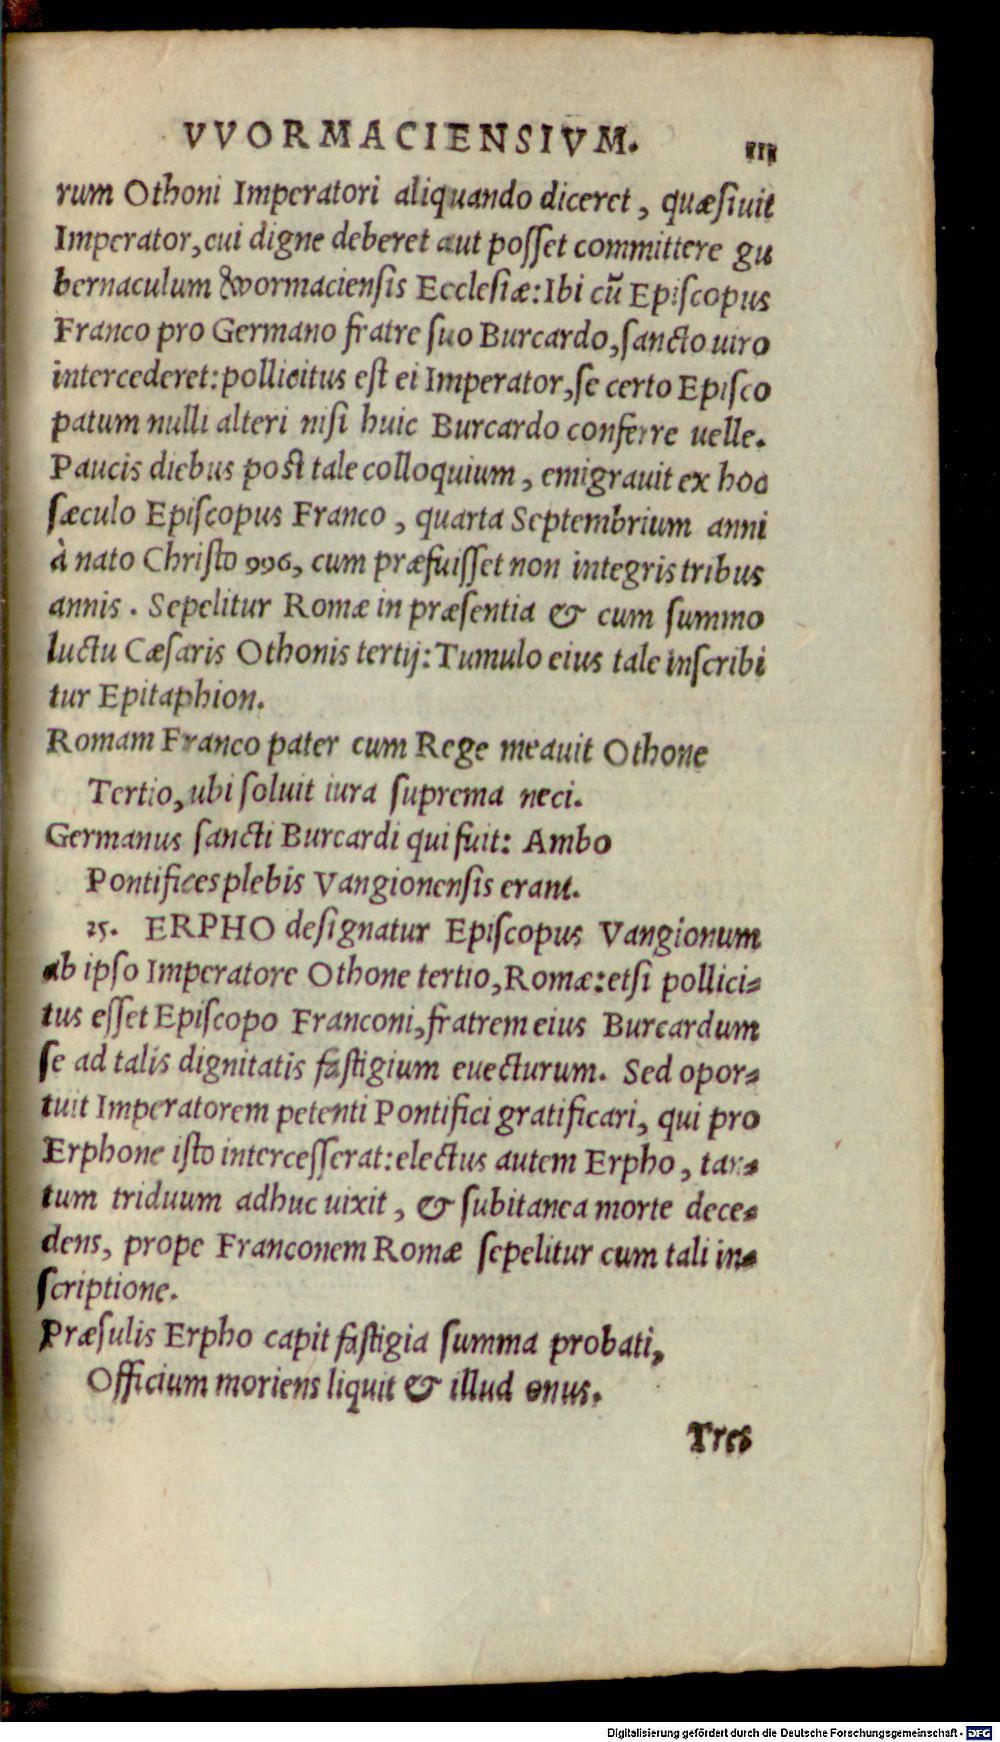 VVORMACIENSIVM.
rum Othoni Imperatori aliquando diceret, quæsiuit
Imperator, cui digne deberet aut posset committere gu
bernaculum VVormaciensis Ecclesiæ: Ibi cũ Episcopus
Franco pro Germano fratre suo Burcardo, sancto uiro
intercederet: pollicitus est ei Imperator, se certo Episco
patum nulli alteri nisi huic Burcardo conferre uelle.
Paucis diebus post tale colloquium, emigrauit ex hoc
sæculo Episcopus Franco, quarta Septembrium anni
à nato Christo 996, cum præfuisset non integris tribus
annis. Sepelitur Romæ in præsentia & cum summo
luctu Cæsaris Othonis tertij: Tumulo eius tale inscribi
tur Epitaphion.
Romam Franco pater cum Rege meauit Othone
Tertio, ubi soluit iura suprema neci.
Germanus sancti Burcardi qui fuit: Ambo
Pontifices plebis Vangionensis erant.
25. ERPHO designatur Episcopus Vangionum
ab ipso Imperatore Othone tertio, Romæ: etsi pollici-
tus esset Episcopo Franconi, fratrem eius Burcardum
se ad talis dignitatis fastigium euecturum. Sed opor-
tuit Imperatorem petenti Pontifici gratificari, qui pro
Erphone isto intercesserat: electus autem Erpho, tan-
tum triduum adhuc uixit, & subitanea morte dece-
dens, prope Franconem Romæ sepelitur cum tali in-
scriptione.
Præsulis Erpho capit fastigia summa probati,
Officium moriens liquit & illud onus.
Tres
Digitalisierung gefördert durch die Deutsche Forschungsgemeinschaft - DFG